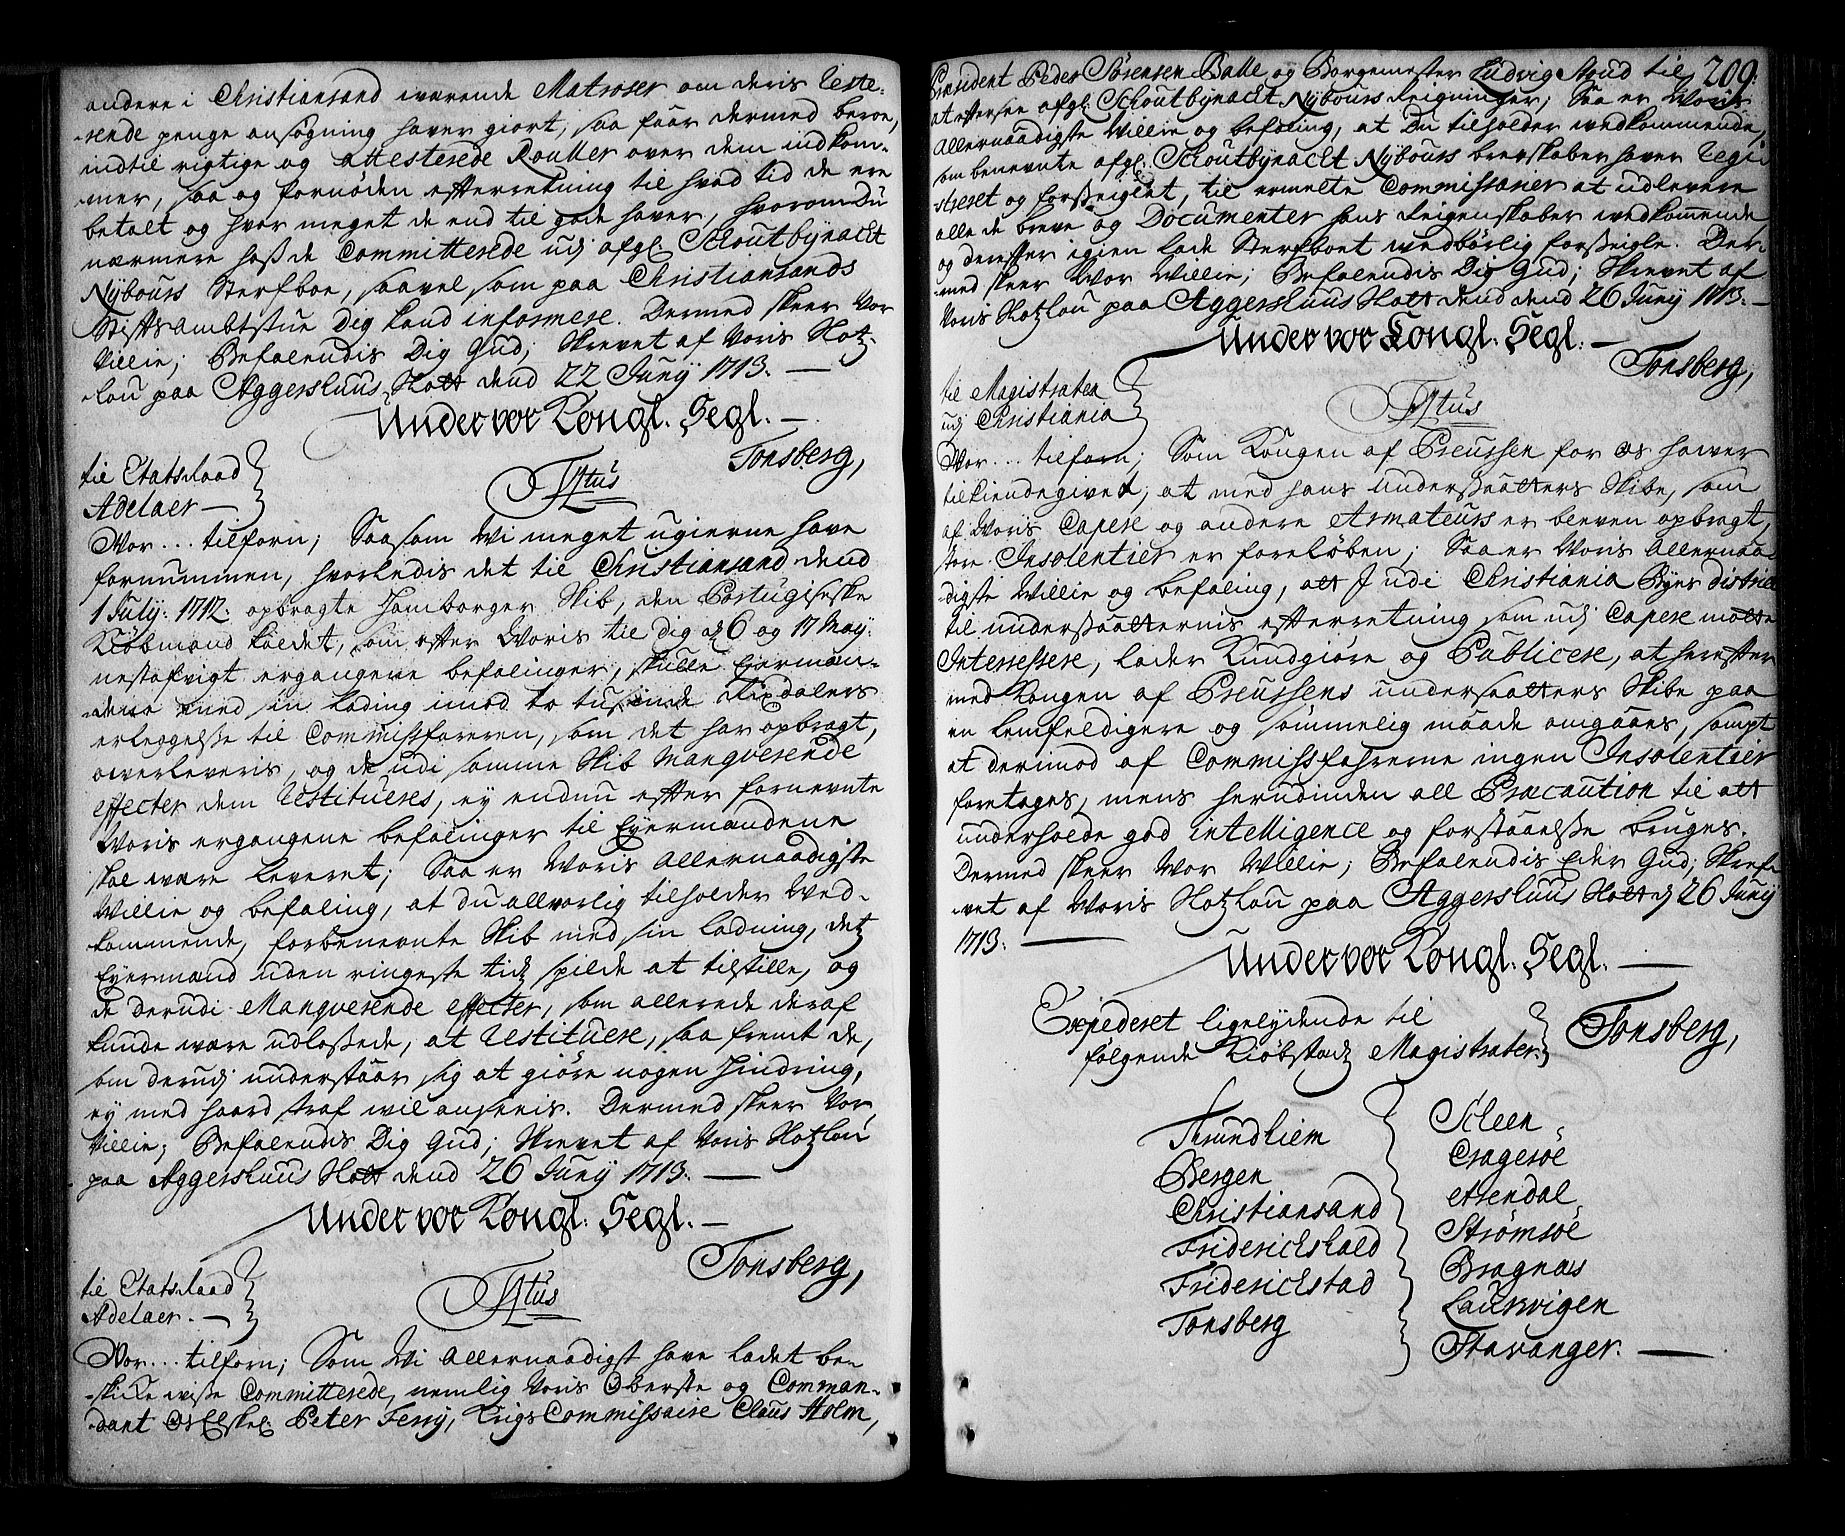 andere i Christiansand wærende Matroser om deris Reste-
-rende penge ansøgning haver giort, saa faar dermed beroe,
indtil rigtige og attesterede Rouller over dem indkom-
-mer, saa og fornøden efterretning til hvad tid de ere
betalt og hvor meget de end til gode haver, hvorom Du
nærmere hos de Committerede udj afgl. Schoutbynacht
Nÿbours Sterfboe, saavel som paa Christiansands
Stiftsambtstue Dig kand informere. Dermed skeer Vor
Villie; Befalendis Dig Gud; Skrevet af Voris Slotz-
-lou paa Aggershuus Slott dend 22 Junÿ 1713. —
Under vor Kongl. Segl. —
Tonsberg,
til Etatsraad
Adelaer —
Titus
Vor... tilforn; Saasom Wi meget ugierne have
fornummen, hvorledis det til Christiansand dend
1 Julÿ: 1712: opbragte Hamborger Skib, den Portugiseske
Kiøbmand kaldet, som efter Voris til dig af 6 og 17 Maÿ:
nestafvigt ergangene befalinger, skulle Eyermæn-
-dene med sin Lading imod to tusinde Rixdalers
erleggelse til Commissfareren, som det har opbragt,
overleveris, og de udi samme Skib Manqverende
effecter dem Restitueres, ey endnu efter fornevnte
Voris ergangene befalinger til Eyermændene
skal være leveret; Saa er Voris allernaadigste
Villie og befaling, at du allvorlig tilholder Wed-
-kommende, forbenevnte Skib med sin ladning, det
Eyermænd uden ringeste tidz spilde at tilstille, og
de derudi Manqverende effecter, som allerede deraf
kunde være udlossede, at Restituere, saa fremt de,
som derudj understaar sig at giøre nogen Hindring,
ey med haard straf wil ansees. Dermed skeer Vor
Villie; Befalendis Dig Gud; Skrevet af Voris Slotzlou
paa Aggershuus Slott dend 26 Junÿ 1713. —
Under vor Kongl. Segl. —
Tonsberg,
til Etatsraad
Adelaer. —
Titus
Vor... tilforn; Som Wi allernaadigst have ladet be-
-skikke wisse Committerede, nemlig Voris Oberste og Comman-
-dant Os Elskel. Peter Ferrÿ, Krigs Commissaire Claus Holm,
Præsident Peder Sørensen Balle og Borgemester Ludvig Stoud til 209.
at efftersee afgl. Schoutbynacht Nÿbours Reigninger; Saa er Voris
allernaadigste Villie og befaling, at Du tilholder wedkommende,
som benevnte afgl. Schoutbynacht Nÿbours brevskaber haver Regi-
streret og forseiglet, til ermelte Commissarier at udlevere
alle de breve og Documenter hans Reigenskaber wedkommende
og derefter igien lade Sterfboet wedbørlig forseigle. Der-
-med skeer Vor Villie; Befalendis Dig Gud; Skrevet af
Voris Slotzlou paa Aggershuus Slott dend 26 Junÿ 1713. —
Under vor Kongl. Segl. —
Tonsberg,
til Magistraten
udj Christiania
Titus
Vor... tilforn; Som Kongen af Preussen for os hawer
tilkiendegivet, at med hans undersaatters Skibe, som
af Voris Capere og andere Armateurs er bleven opbragt,
store Insolentier er foreløben; Saa er Voris allernaa-
digste Villie og befaling, att I udi Christiania Byes district
til undersaatternis efterretning som udj Capere motte
Interessere, lader Kundgiøre og Publicere, at herefter
med Kongen af Preussens undersaatters Skibe paa
en lemfeldigere og sømmelig maade omgaaes, sampt
at derimod af Commissfahrerne ingen Insolentier
foretages, mens herudinden all Præcaution til att
underholde god intelligence og forstaaelse bruges.
Dermed skeer Vor Villie; Befalendis Eder Gud; Skre-
-vet af Voris Slotzlou paa Aggershuus Slott d. 26 Junÿ
1713: —
Under vor Kongl. Segl. —
Expederet ligelydende til
følgende Kiøbstædz Magistrater.
Tonsberg,
Trundhiem
Bergen
Christiansand
Friderichshald
Friderichstad
Tonsberg
Scheen
Cragerøe
Arendal
Strømsøe
Bragnæs
Laurwigen
Stavanger. —